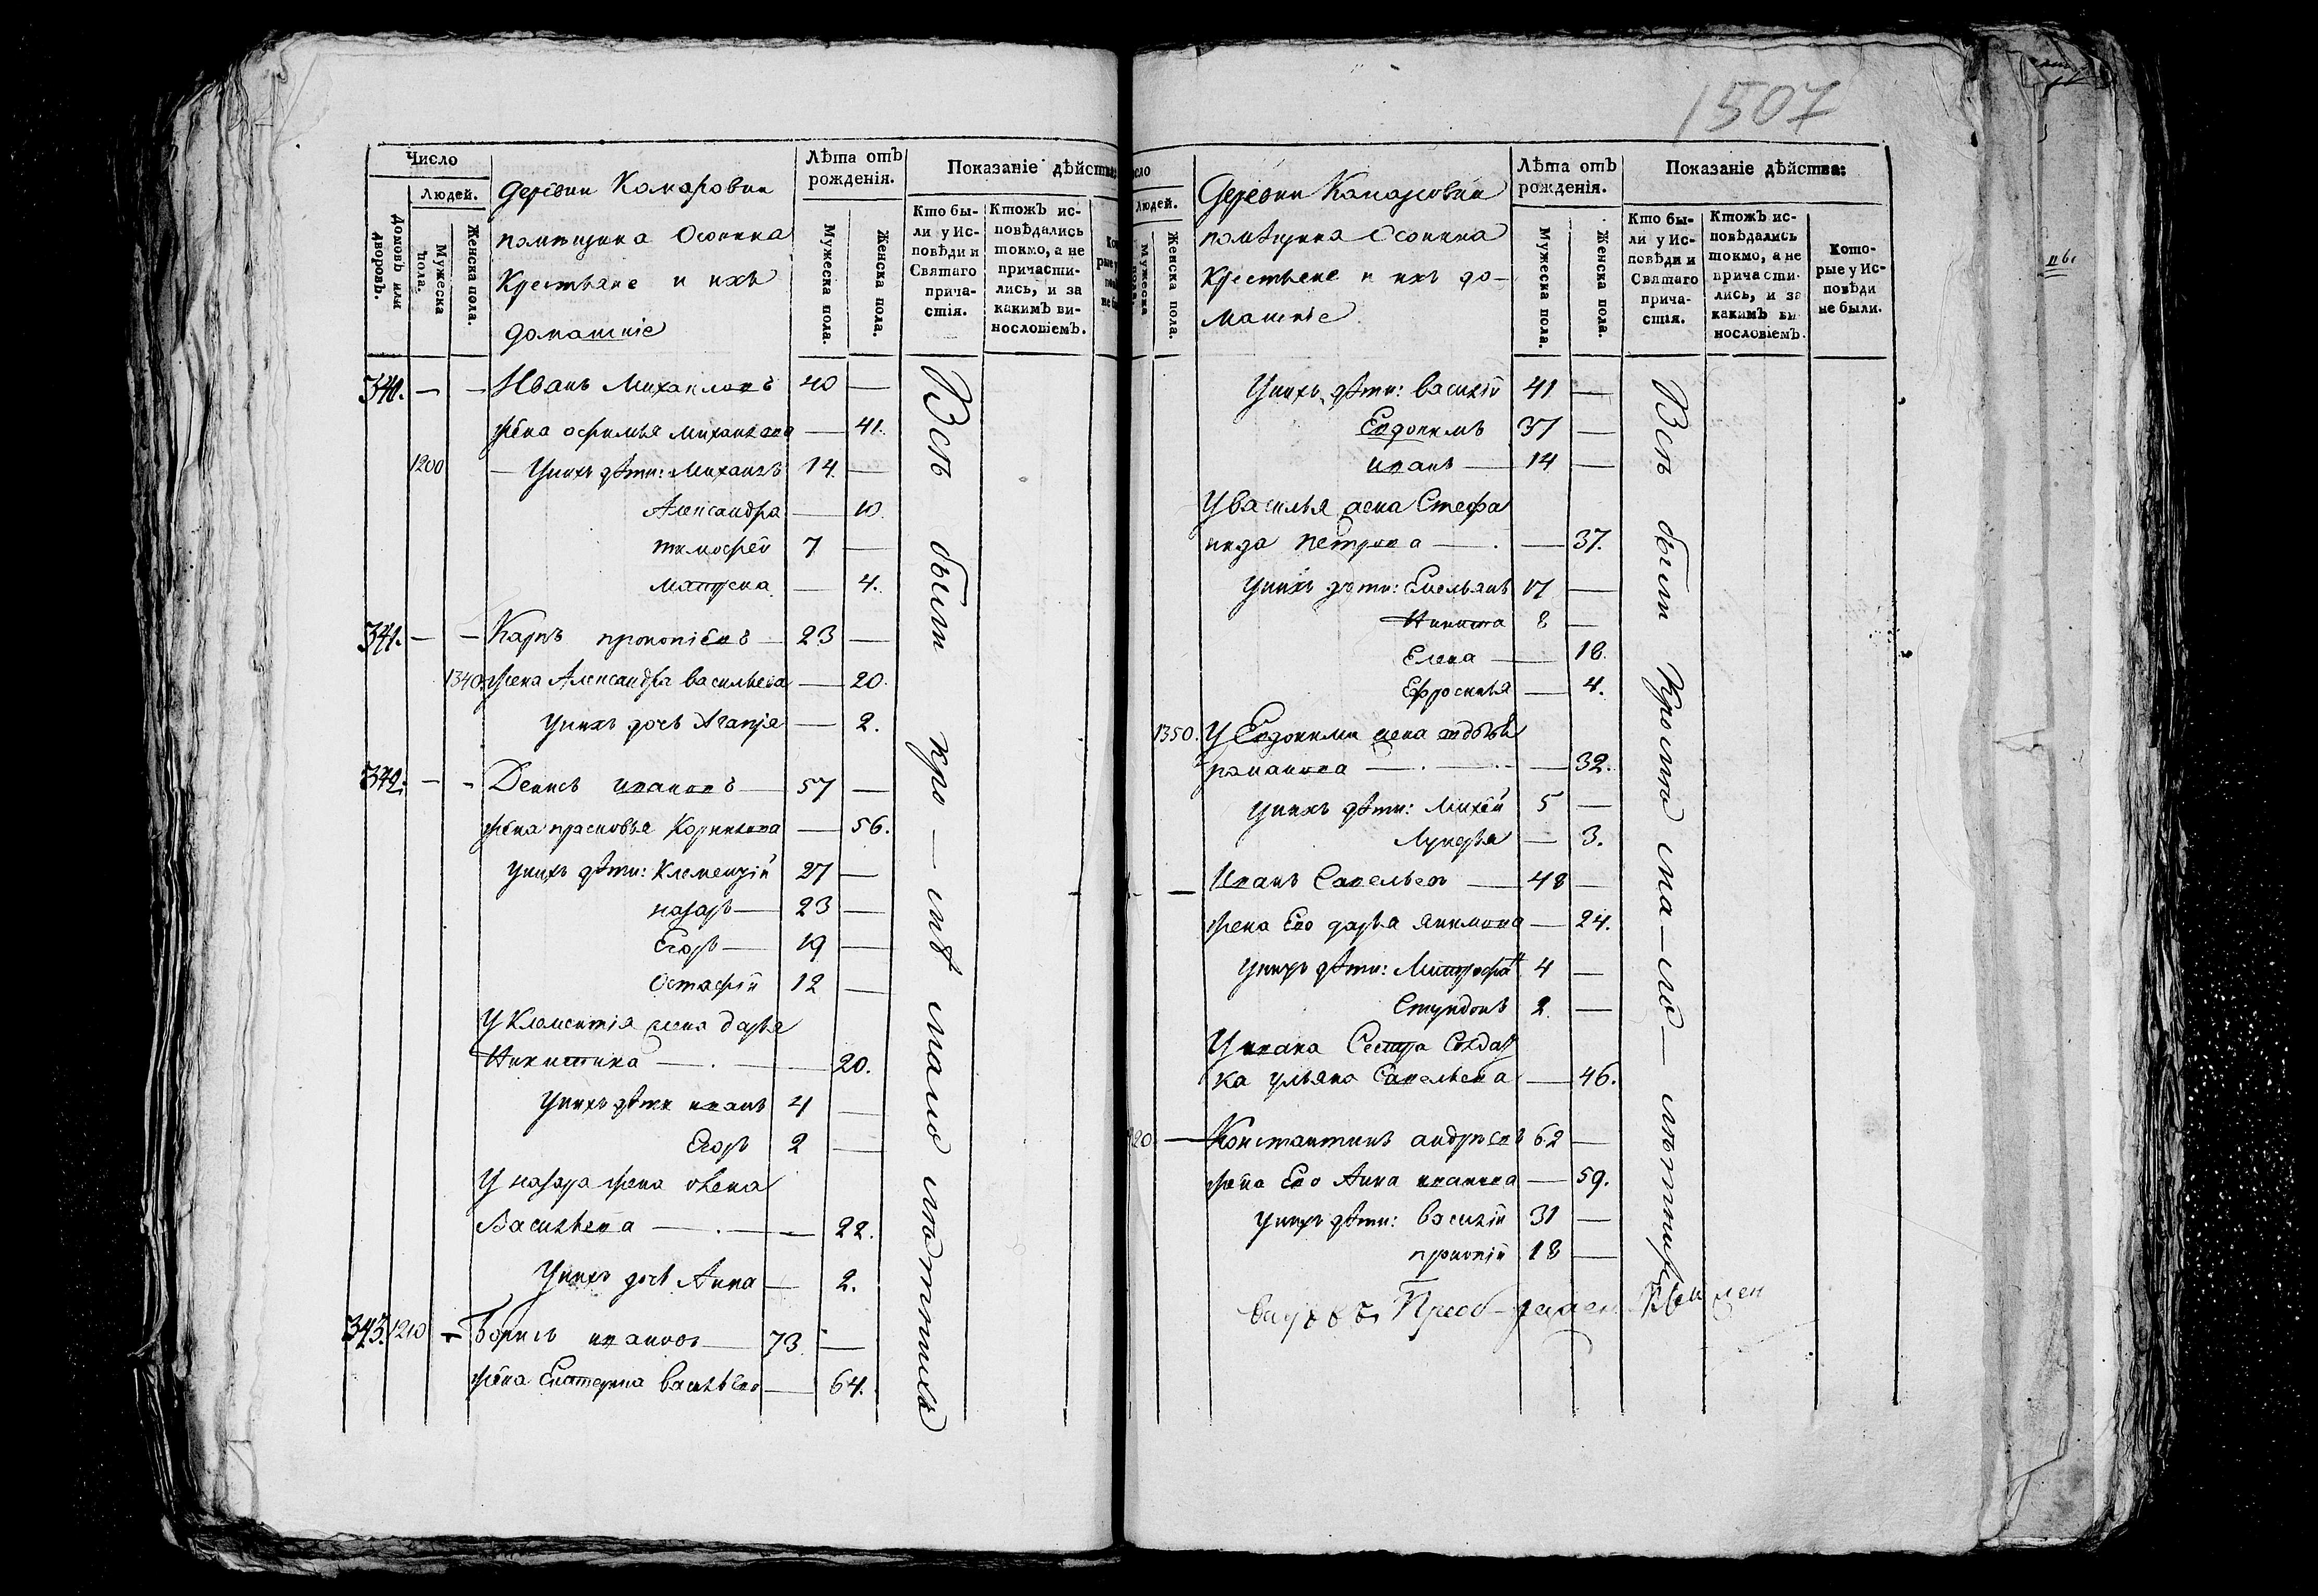 Число
Людей.
Домовъ или дворовъ.
Мужеска пола.
Женска пола.
деревни Комаровки
помещика Осонина
Крестьяне и ихъ
домашніе
Лѣта отъ рожденія.
Мужеска пола.
Женска пола.
Показаніе дѣйства:
Кто бы-
ли у Ис-
повѣди и
Святаго
прича-
стія.
Ктожъ ис-
повѣдались
токмо, а не
причасти-
лись, и за
какимъ ви-
нословіемъ.
340. — — Иванъ Михаиловъ 40 —
жена афимья михаилова — 41.
1200 — У нихъ дѣти: Михаилъ 14 —
Александра — 10.
тимофей 7 —
матрена — 4.
341. — — Карпъ прокопіевъ — 23 —
1340. жена Александра васильева — 20.
У нихъ дочь Агапія — 2.
342. — — Денисъ ивановъ — 57 —
жена прасковья Корнилова — 56.
У нихъ дѣти: Клементій 27 —
назаръ — 23 —
Егоръ — 19 —
Остафій 12 —
У Клементія жена дарья
Никитина — . — 20.
У нихъ дѣти иванъ 4 —
Егоръ 2 —
У назара жена овена
Васильева — . — 22.
У нихъ дочь Анна — 2.
343. 1210 — Борисъ ивановъ — 73. —
жена Екатерина васильева — 64.
Всѣ были кро — мѣ мало лѣтнихъ
1507
Людей.
Мужеска пола.
Женска пола.
Деревни Комаровки
помѣщика Осонина
Крестьяне и ихъ до-
машніе
Лѣта отъ рожденія.
Мужеска пола.
Женска пола.
Показаніе дѣйства:
Кто бы-
ли у Ис-
повѣди и
Святаго
прича-
стія.
Ктожъ ис-
повѣдались
токмо, а не
причасти-
лись, и за
какимъ ви-
нословіемъ.
Кото-
рые у Ис-
повѣди
не были.
У нихъ дѣти: василій 41 —
Евдокимъ 37 —
иванъ — 14 —
У василья жена Стефа
нида петрова — . — 37.
У нихъ дѣти: Емельянъ 17 —
Никита 8 —
Елена — 18.
Ефросинья — 4.
1350. У Евдокима жена
романова — . — 32.
У нихъ дѣти: михей 5 —
Лукерья — 3.
— Иванъ Савельевъ — 48 —
жена Его дарья якимова — 24.
У нихъ дѣти: Митрофанъ 4 —
Спиридонъ 2. —
У ивана Сестра Солдат
ка ульяна Савельева — 46.
20 — Константинъ андреевъ 62 —
жена Его Анна иванова — 59.
У нихъ дѣти: василій 31 —
прокопій 18 —
Всѣ были Кромѣ ма — ло — лѣтнихъ